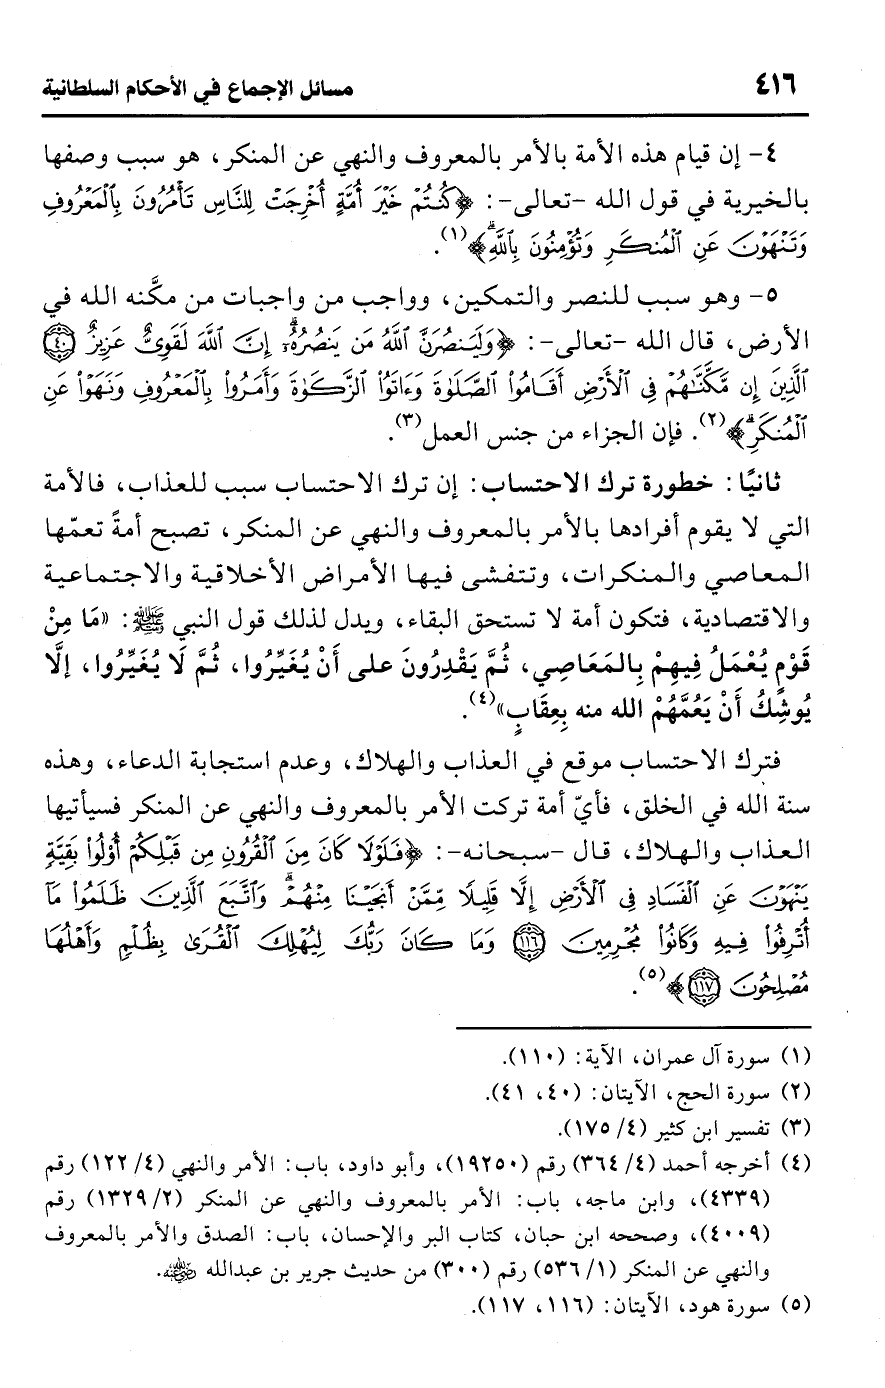 ٤١٦ مسائل الإجماع في الأحكام السلطانية
٤- إن قيام هذه الأمة بالأمر بالمعروف والنهي عن المنكر، هو سبب وصفها
بالخيرية في قول الله -تعالى-: ﴿كُنتُمْ خَيْرَ أُمَّةٍ أُخْرِجَتْ لِلنَّاسِ تَأْمُرُونَ بِٱلْمَعْرُوفِ
وَتَنْهَوْنَ عَنِ ٱلْمُنكَرِ وَتُؤْمِنُونَ بِٱللَّهِۗ﴾(١).
٥- وهو سبب للنصر والتمكين، وواجب من واجبات من مكَّنه الله في
الأرض، قال الله -تعالى-: ﴿وَلَيَنصُرَنَّ ٱللَّهُ مَن يَنصُرُهُۥٓۗ إِنَّ ٱللَّهَ لَقَوِىٌّ عَزِيزٌ ٤٠
ٱلَّذِينَ إِن مَّكَّنَّٰهُمْ فِى ٱلْأَرْضِ أَقَامُوا۟ ٱلصَّلَوٰةَ وَءَاتَوُا۟ ٱلزَّكَوٰةَ وَأَمَرُوا۟ بِٱلْمَعْرُوفِ وَنَهَوْا۟ عَنِ
ٱلْمُنكَرِۗ﴾(٢). فإن الجزاء من جنس العمل(٣).
ثانيًا: خطورة ترك الاحتساب: إن ترك الاحتساب سبب للعذاب، فالأمة
التي لا يقوم أفرادها بالأمر بالمعروف والنهي عن المنكر، تصبح أمةً تعمّها
المعاصي والمنكرات، وتتفشى فيها الأمراض الأخلاقية والاجتماعية
والاقتصادية، فتكون أمة لا تستحق البقاء، ويدل لذلك قول النبي ﷺ: «مَا مِنْ
قَوْمٍ يُعْمَلُ فِيهِمْ بِالمَعَاصِي، ثُمَّ يَقْدِرُونَ على أَنْ يُغَيِّرُوا، ثُمَّ لَا يُغَيِّرُوا، إلَّا
يُوشِكُ أَنْ يَعُمَّهُمْ الله منه بِعِقَابٍ»(٤).
فترك الاحتساب موقع في العذاب والهلاك، وعدم استجابة الدعاء، وهذه
سنة الله في الخلق، فأيّ أمة تركت الأمر بالمعروف والنهي عن المنكر فسيأتيها
العذاب والهلاك، قال -سبحانه-: ﴿فَلَوْلَا كَانَ مِنَ ٱلْقُرُونِ مِن قَبْلِكُمْ أُو۟لُوا۟ بَقِيَّةٍ
يَنْهَوْنَ عَنِ ٱلْفَسَادِ فِى ٱلْأَرْضِ إِلَّا قَلِيلًا مِّمَّنْ أَنجَيْنَا مِنْهُمْۗ وَٱتَّبَعَ ٱلَّذِينَ ظَلَمُوا۟ مَآ
أُتْرِفُوا۟ فِيهِ وَكَانُوا۟ مُجْرِمِينَ ١١٦ وَمَا كَانَ رَبُّكَ لِيُهْلِكَ ٱلْقُرَىٰ بِظُلْمٍ وَأَهْلُهَا
مُصْلِحُونَ ١١٧﴾(٥).
(١) سورة آل عمران، الآية: (١١٠).
(٢) سورة الحج، الآيتان: (٤٠، ٤١).
(٣) تفسير ابن كثير (٤/ ١٧٥).
(٤) أخرجه أحمد (٤/ ٣٦٤) رقم (١٩٢٥٠)، وأبو داود، باب: الأمر والنهي (٤/ ١٢٢) رقم
(٤٣٣٩)، وابن ماجه، باب: الأمر بالمعروف والنهي عن المنكر (٢/ ١٣٢٩) رقم
(٤٠٠٩)، وصححه ابن حبان، كتاب البر والإحسان، باب: الصدق والأمر بالمعروف
والنهي عن المنكر (١/ ٥٣٦) رقم (٣٠٠) من حديث جرير بن عبدالله رضي الله عنه.
(٥) سورة هود، الآيتان: (١١٦، ١١٧).